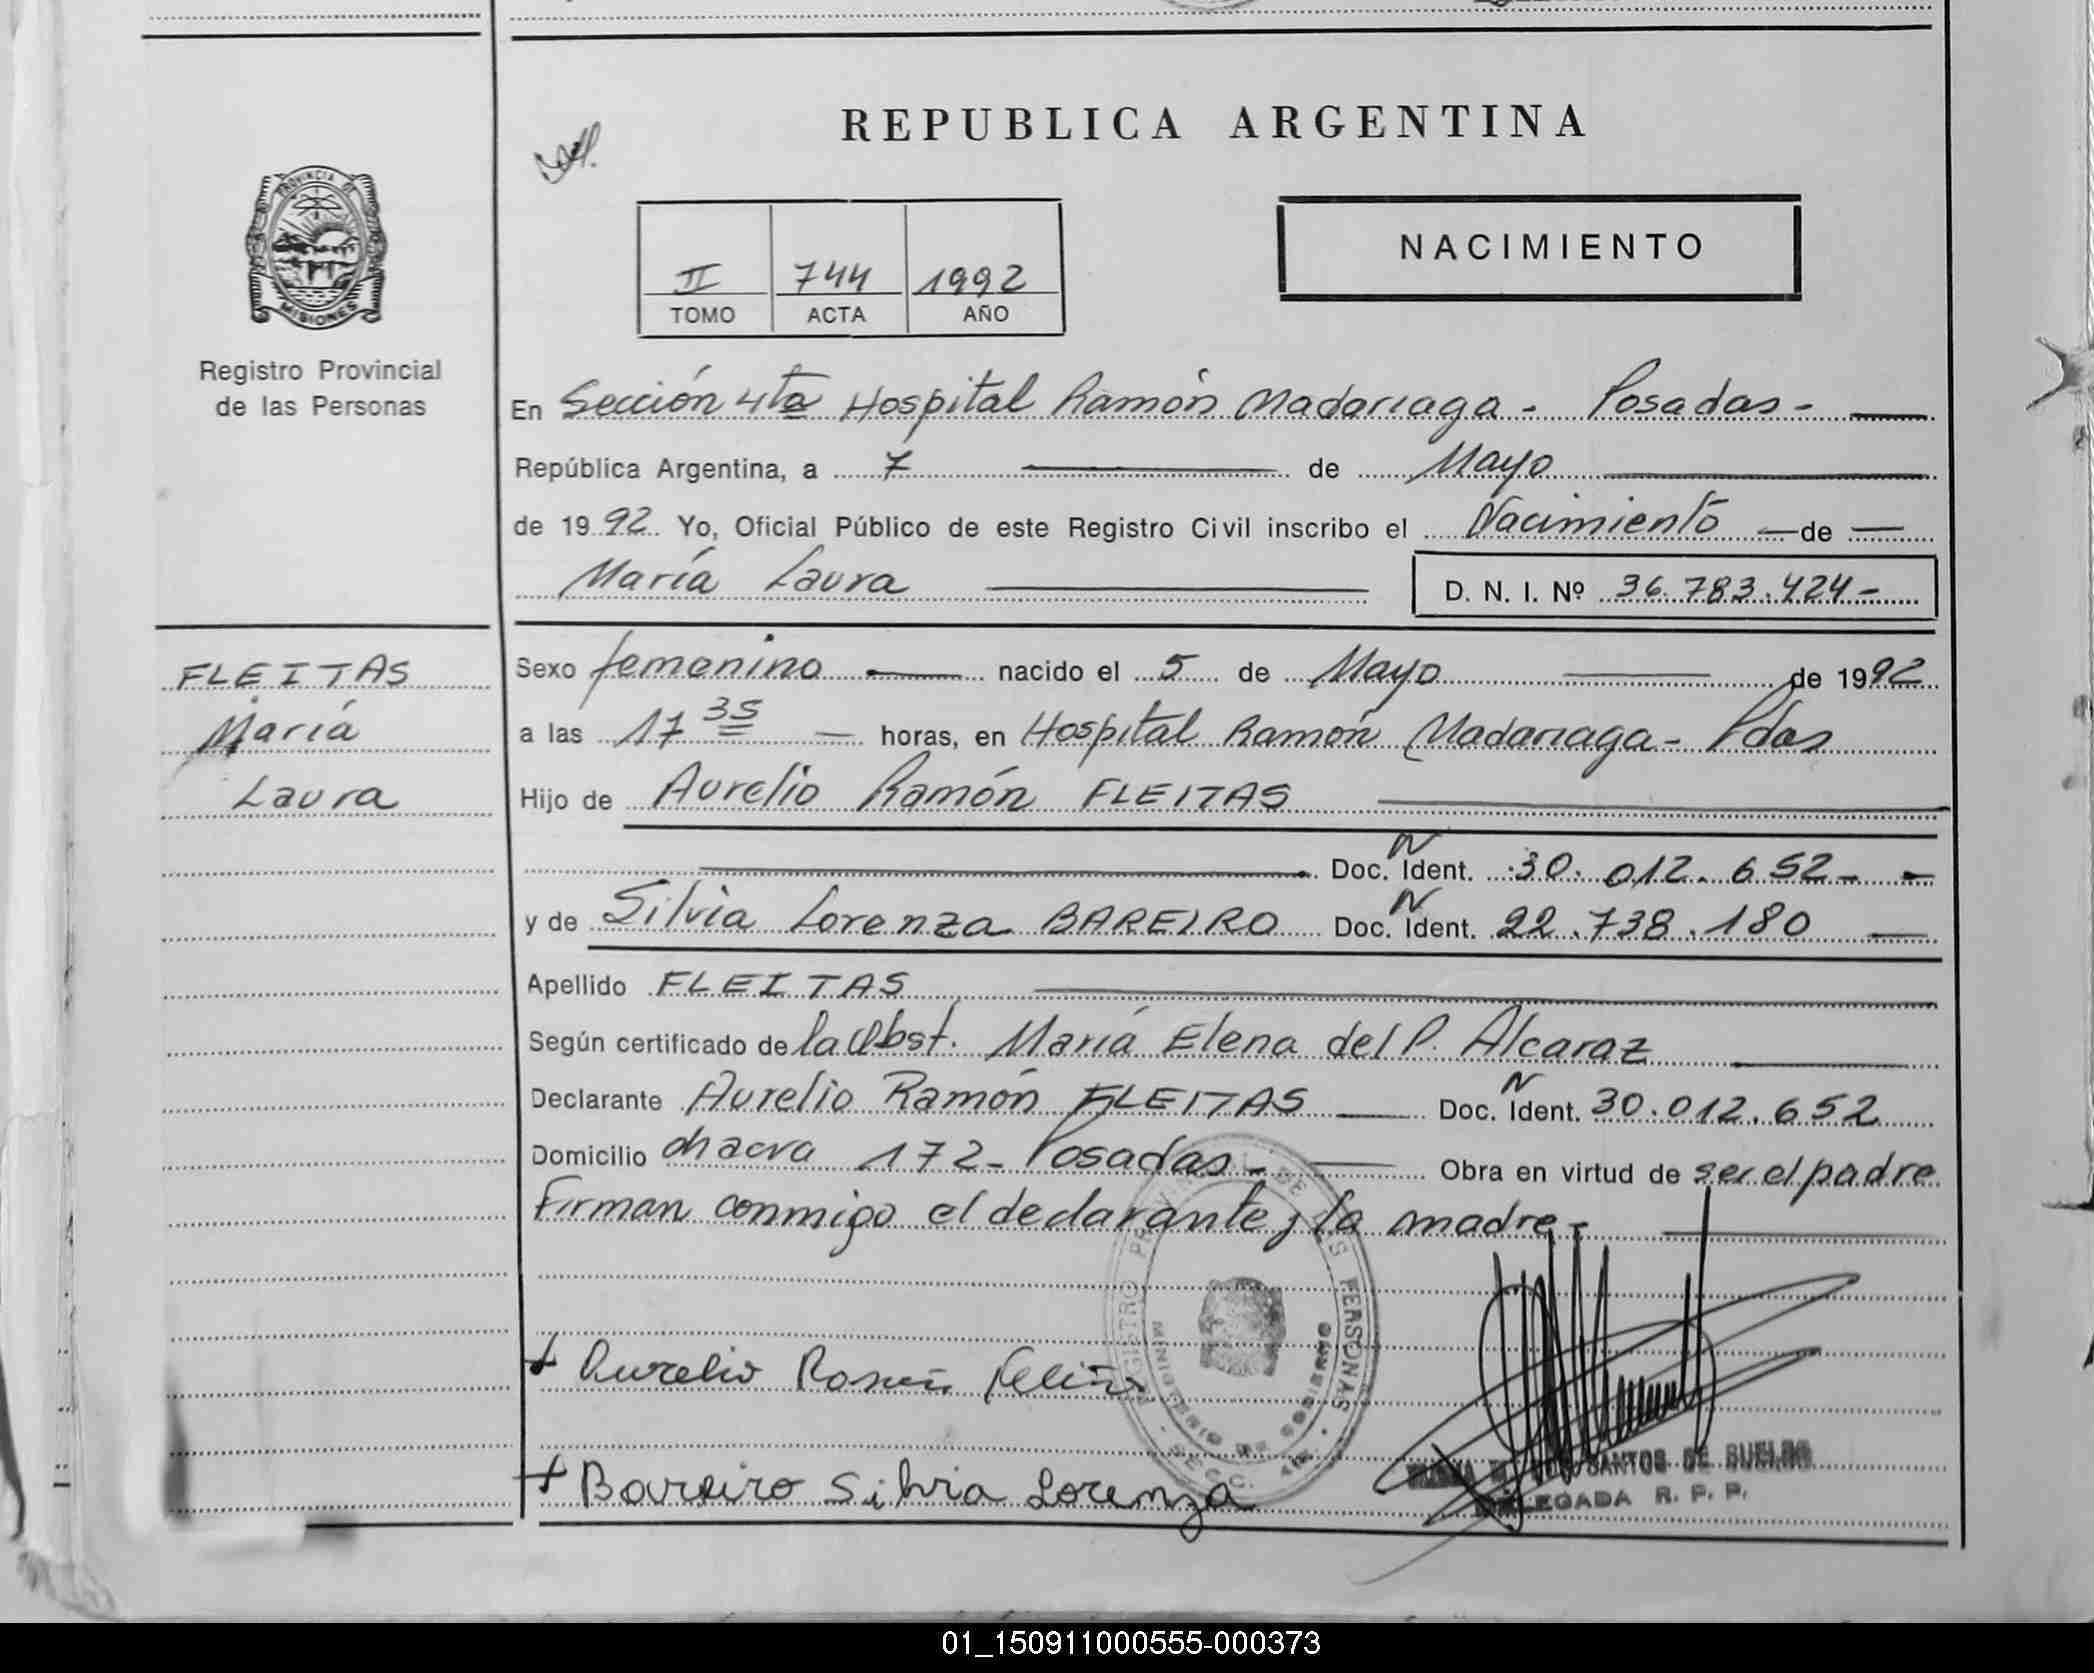 REPUBLICA ARGENTINA
II 744 1992
TOMO ACTA AÑO
NACIMIENTO
PROVINCIA DE
MISIONES
Registro Provincial
de las Personas
En Sección 4ta Hospital Ramón Madariaga - Posadas -
República Argentina, a 7 de Mayo
de 1992. Yo, Oficial Público de este Registro Civil inscribo el Nacimiento de
María Laura D. N. I. Nº 36.783.424-
FLEITAS
María
Laura
Sexo femenino nacido el 5 de Mayo de 1992
a las 17 35 horas, en Hospital Ramón Madariaga - Pdas
Hijo de Aurelio Ramón FLEITAS
Doc. N Ident. 30.012.652-
y de Silvia Lorenza BAREIRO Doc. N Ident. 22.738.180
Apellido FLEITAS
Según certificado de la Obst. María Elena del P. Alcaraz
Declarante Aurelio Ramón FLEITAS Doc. N Ident. 30.012.652
Domicilio chacra 172- Posadas- Obra en virtud de ser el padre
Firman conmigo el declarante y la madre-
REGISTRO PROVINCIAL DE LAS PERSONAS
MINISTERIO DE GOBIERNO
+ Aurelio Ramón
+ Bareiro Silvia Lorenza
SANTOS DE
DELEGADA R. P. P.
01_150911000555-000373